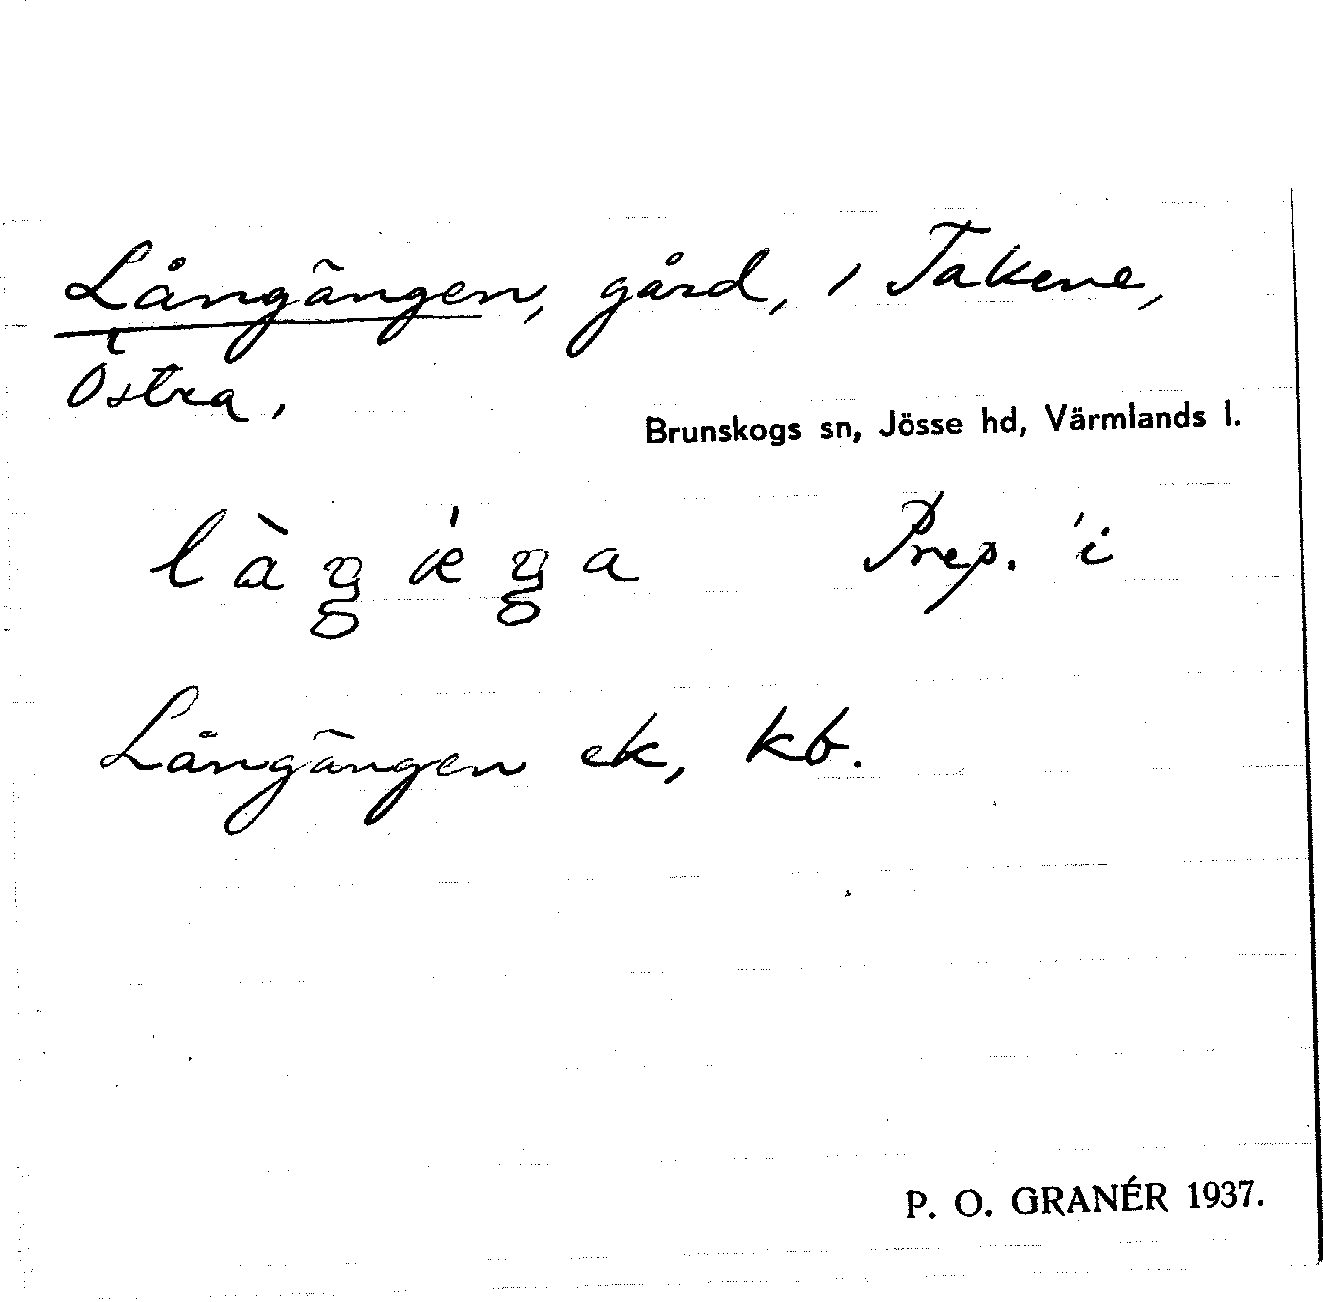 Långängen, gård, i Takene,
Östra,
Brunskogs sn, Jösse hd, Värmlands l.
Prep. i
Långängen ek, kb.
P. O. GRANÉR 1937.